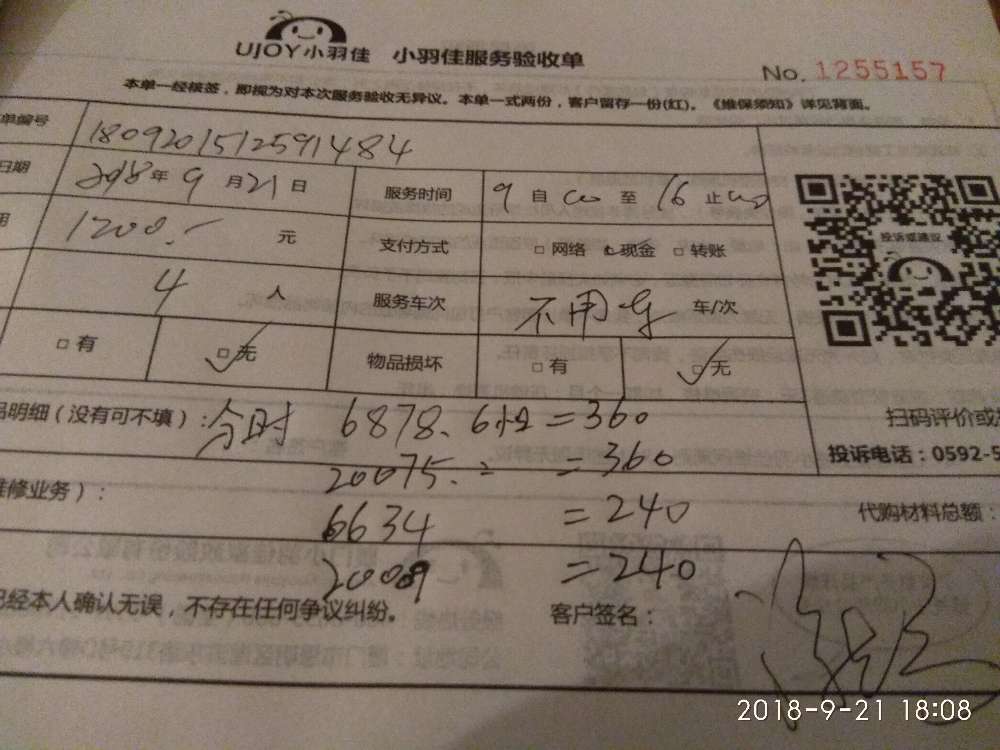 UJOY小羽佳 小羽佳服务验收单
No. 1255157
本单一经核签，即视为对本次服务验收无异议。本单一式两份，客户留存一份(红)。《维保须知》详见背面。
单编号 1809201512591484
日期 2018年9月21日 服务时间 9自00至16止00
用 1200.- 元 支付方式 □网络 ☑现金 □转账
投诉或建议
4 人 服务车次 不用 车/次
□有 ☑无 物品损坏 □有 ☑无
品明细（没有可不填）: 分时 6878. =360
扫码评价或
20075. =360
投诉电话：0592-5
维修业务）:
6634 =240
代购材料总额：
20009 =240
已经本人确认无误，不存在任何争议纠纷。 客户签名：
2018-9-21 18:08